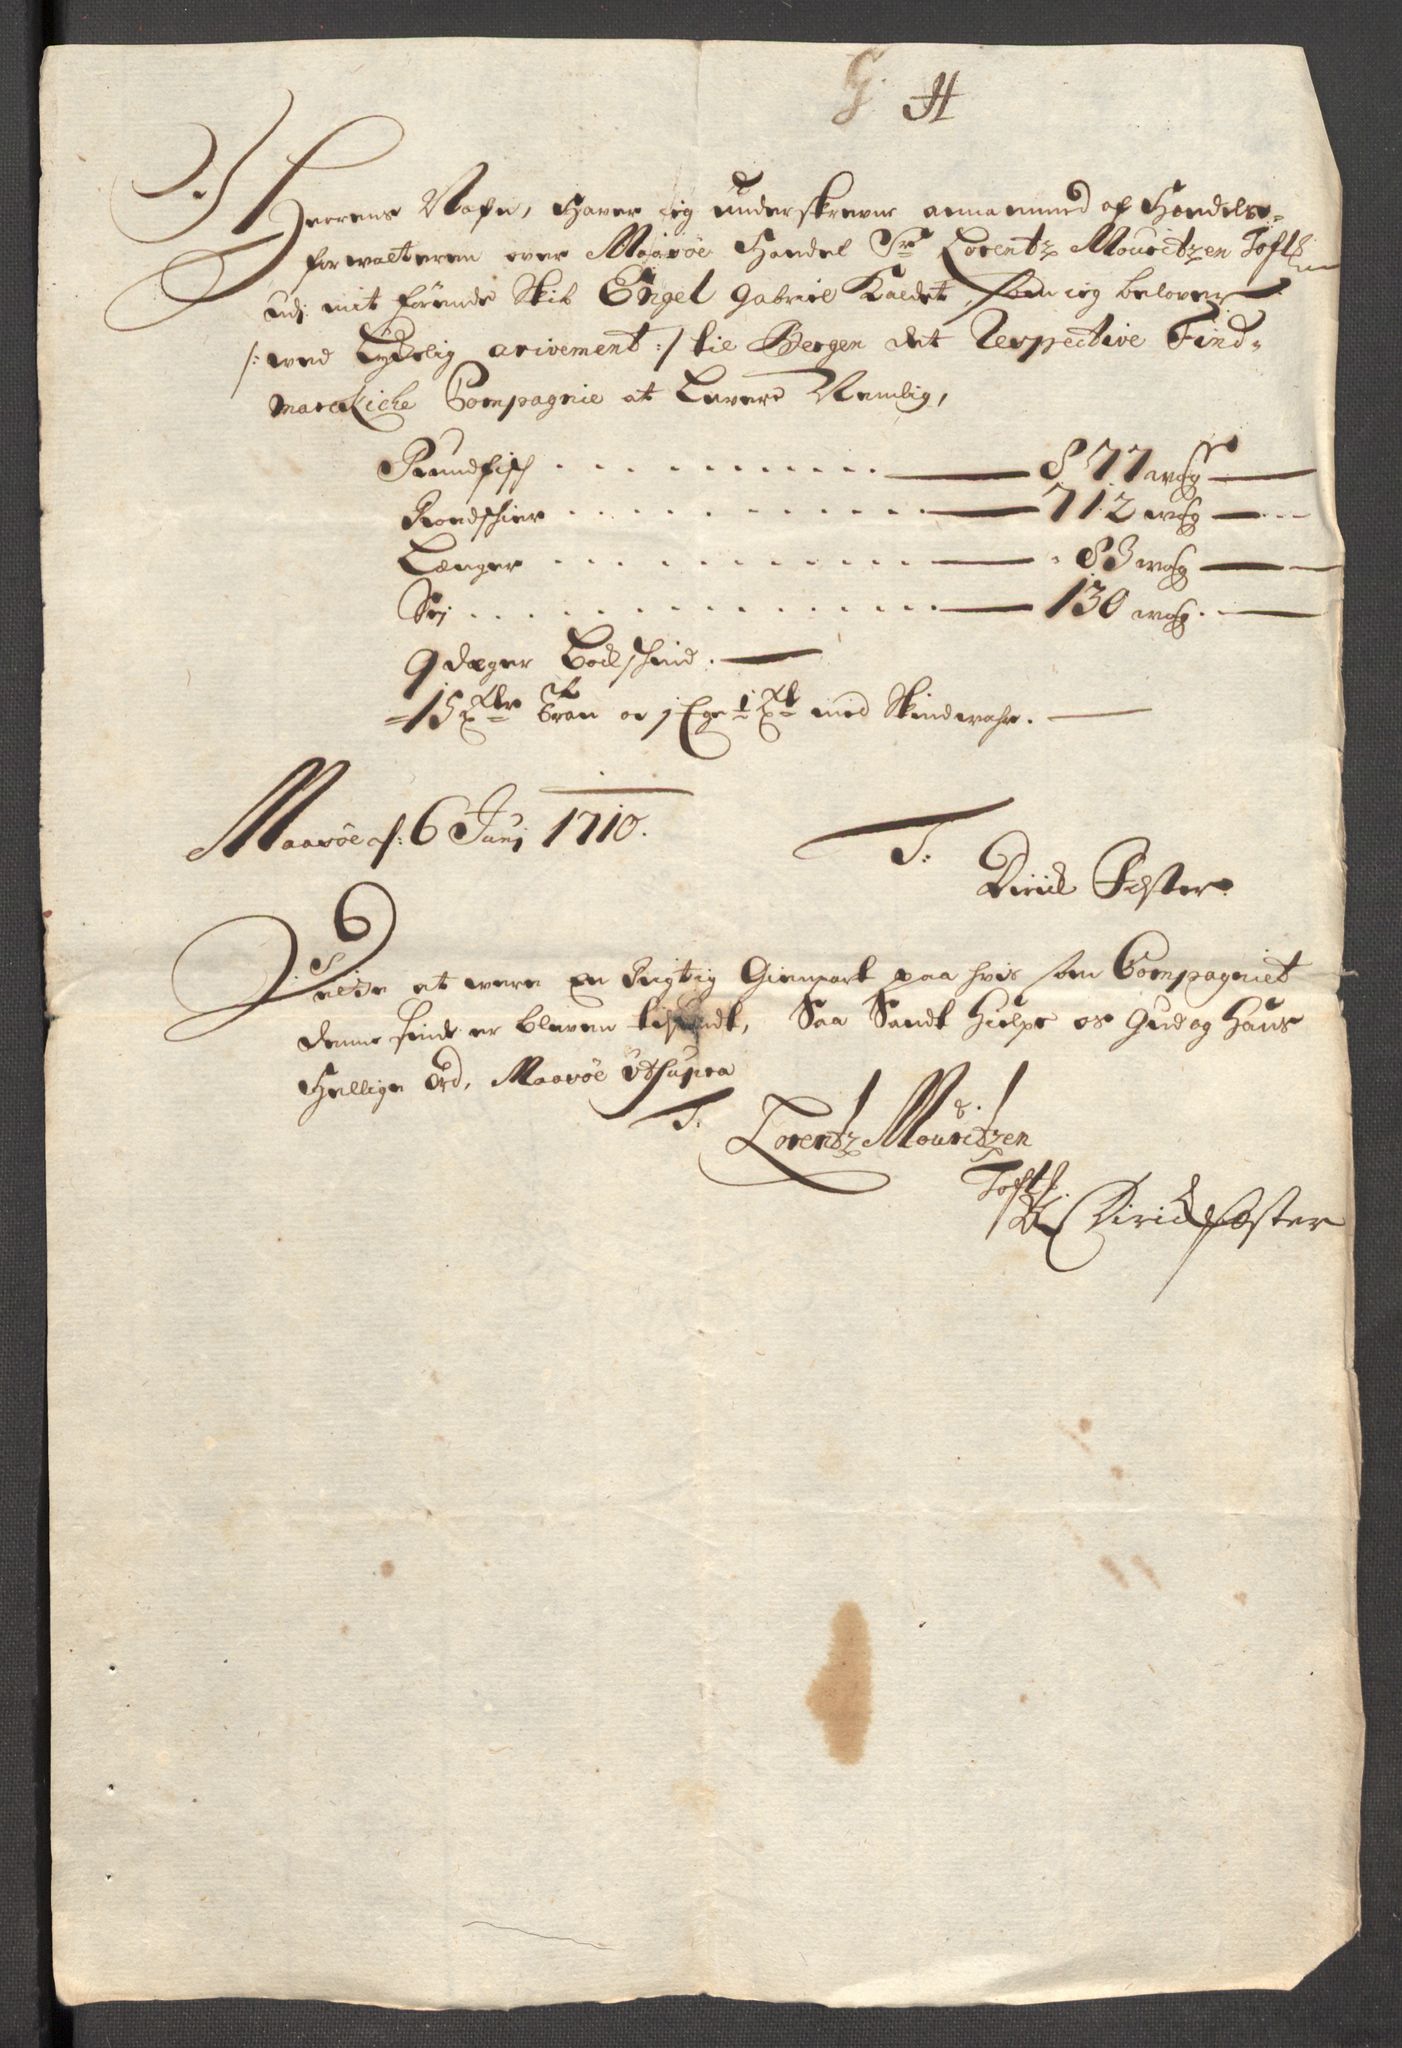 G. H
I Herrens Nafn, Haver ieg underskrevne annammed af Handels-
forwalteren over Maasöe Handel Sr Lorentz Mouritzen Toft
udj mit förende Skib Engel Gabriel Kaldet, som ieg belover
/: wed Lykelig arivement :/ til Bergen det Respective Find-
marckiche Compagnie at Levere Nemlig,
Rundfisch . . . 877 wog
Rondschier . . . 712 wog
Længer . . . 83 wog
Sej . . . 130 wog
9 deger Bockschind.
15 Tran og 1 med Skindwahre.
Maasöe d: 6 Junj 1710.
T:
Dirick Fester.
Dette at were en Rigtig Gienpart paa hvis som Compagniet
denne sinde er bleven tilsendt, Saa Sandt Hielpe os Gud og Hans
Hellige Ord, Maasöe Ut Supra
T: Lorentz Mouritzen
Toft
Dirick Fester